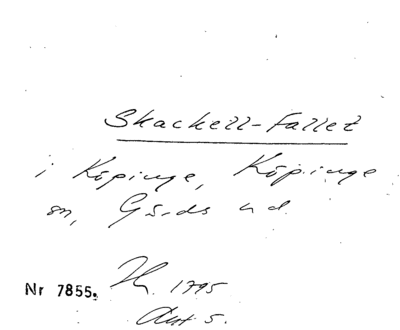 Skackell-Fallet
i Köpinge, Köpinge
sn, Gärds hd.
Nr 7855. H. 1795
Akt 5.